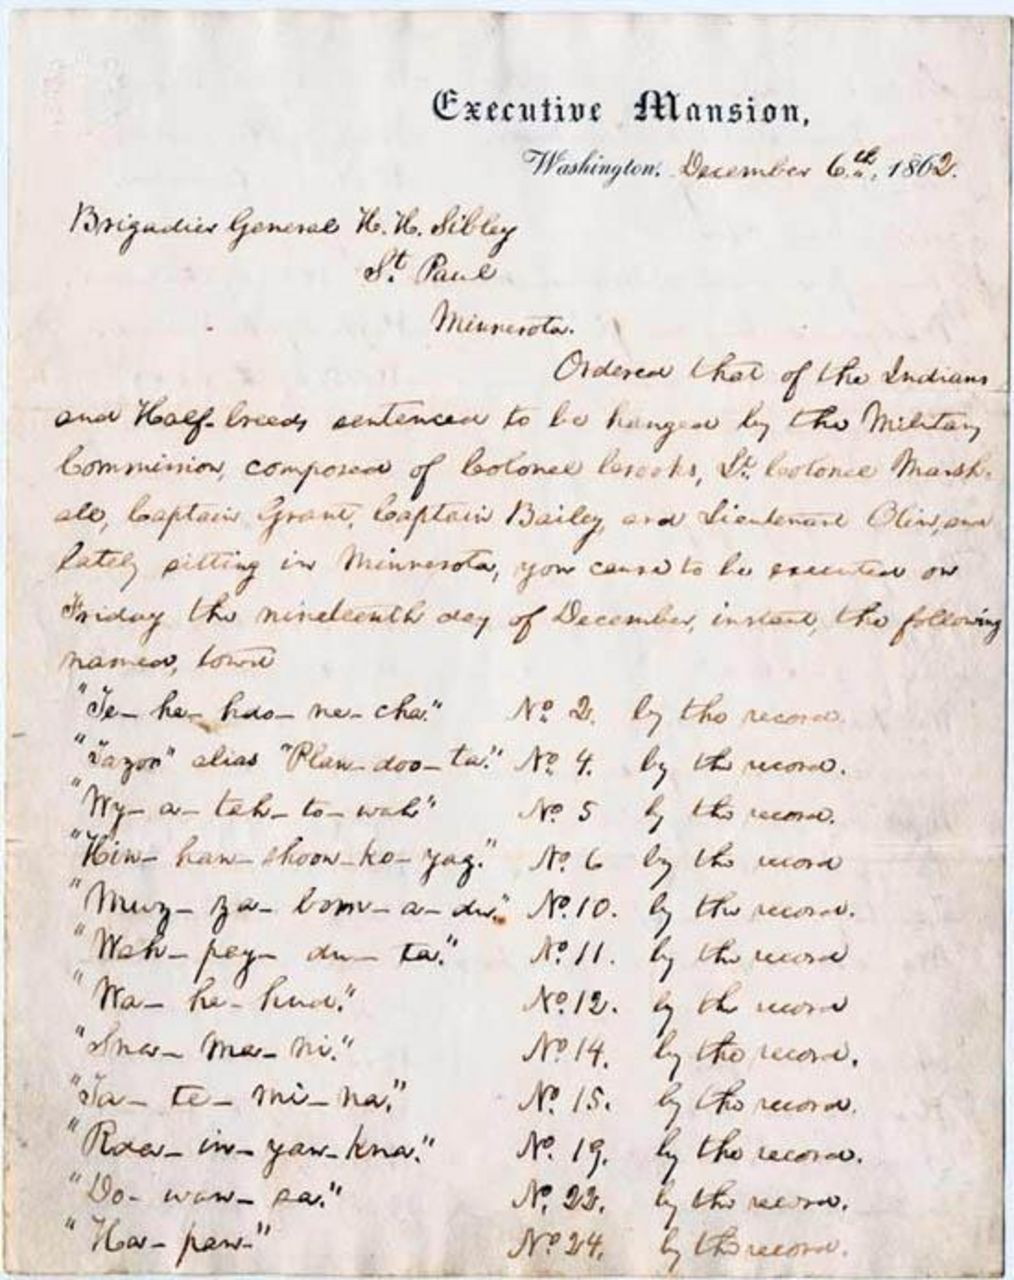 Executive Mansion,
Washington, December 6th, 1862.
Brigadier General H. H. Sibley
St. Paul
Minnesota.
Ordered that of the Indians
and Half-breeds sentenced to be hanged by the Military
Commission, composed of Colonel Crooks, Lt. Colonel Marsh-
all, Captain Grant, Captain Bailey, and Lieutenant Olin, and
lately sitting in Minnesota, you cause to be executed on
Friday the nineteenth day of December, instant, the following
named, towit
"Te- he- hdo- ne- cha." No. 2. by the record.
"Tazoo" alias "Plan- doo- ta." No. 4. by the record.
"Wy- a- tah- to- wah" No. 5 by the record.
"Hin- han- shoon- ko- yag." No. 6 by the record
"Muz- za- bom- a- du." No. 10. by the record.
"Wah- pey- du- ta." No. 11. by the record
"Wa- he- hud." No. 12. by the record
"Sna- ma- ni." No. 14. by the record.
"Ta- te- mi- na." No. 15. by the record.
"Rda- in- yan- kna." No. 19. by the record.
"Do- wan- sa." No. 22. by the record.
"Ha- pan." No. 24. by the record.